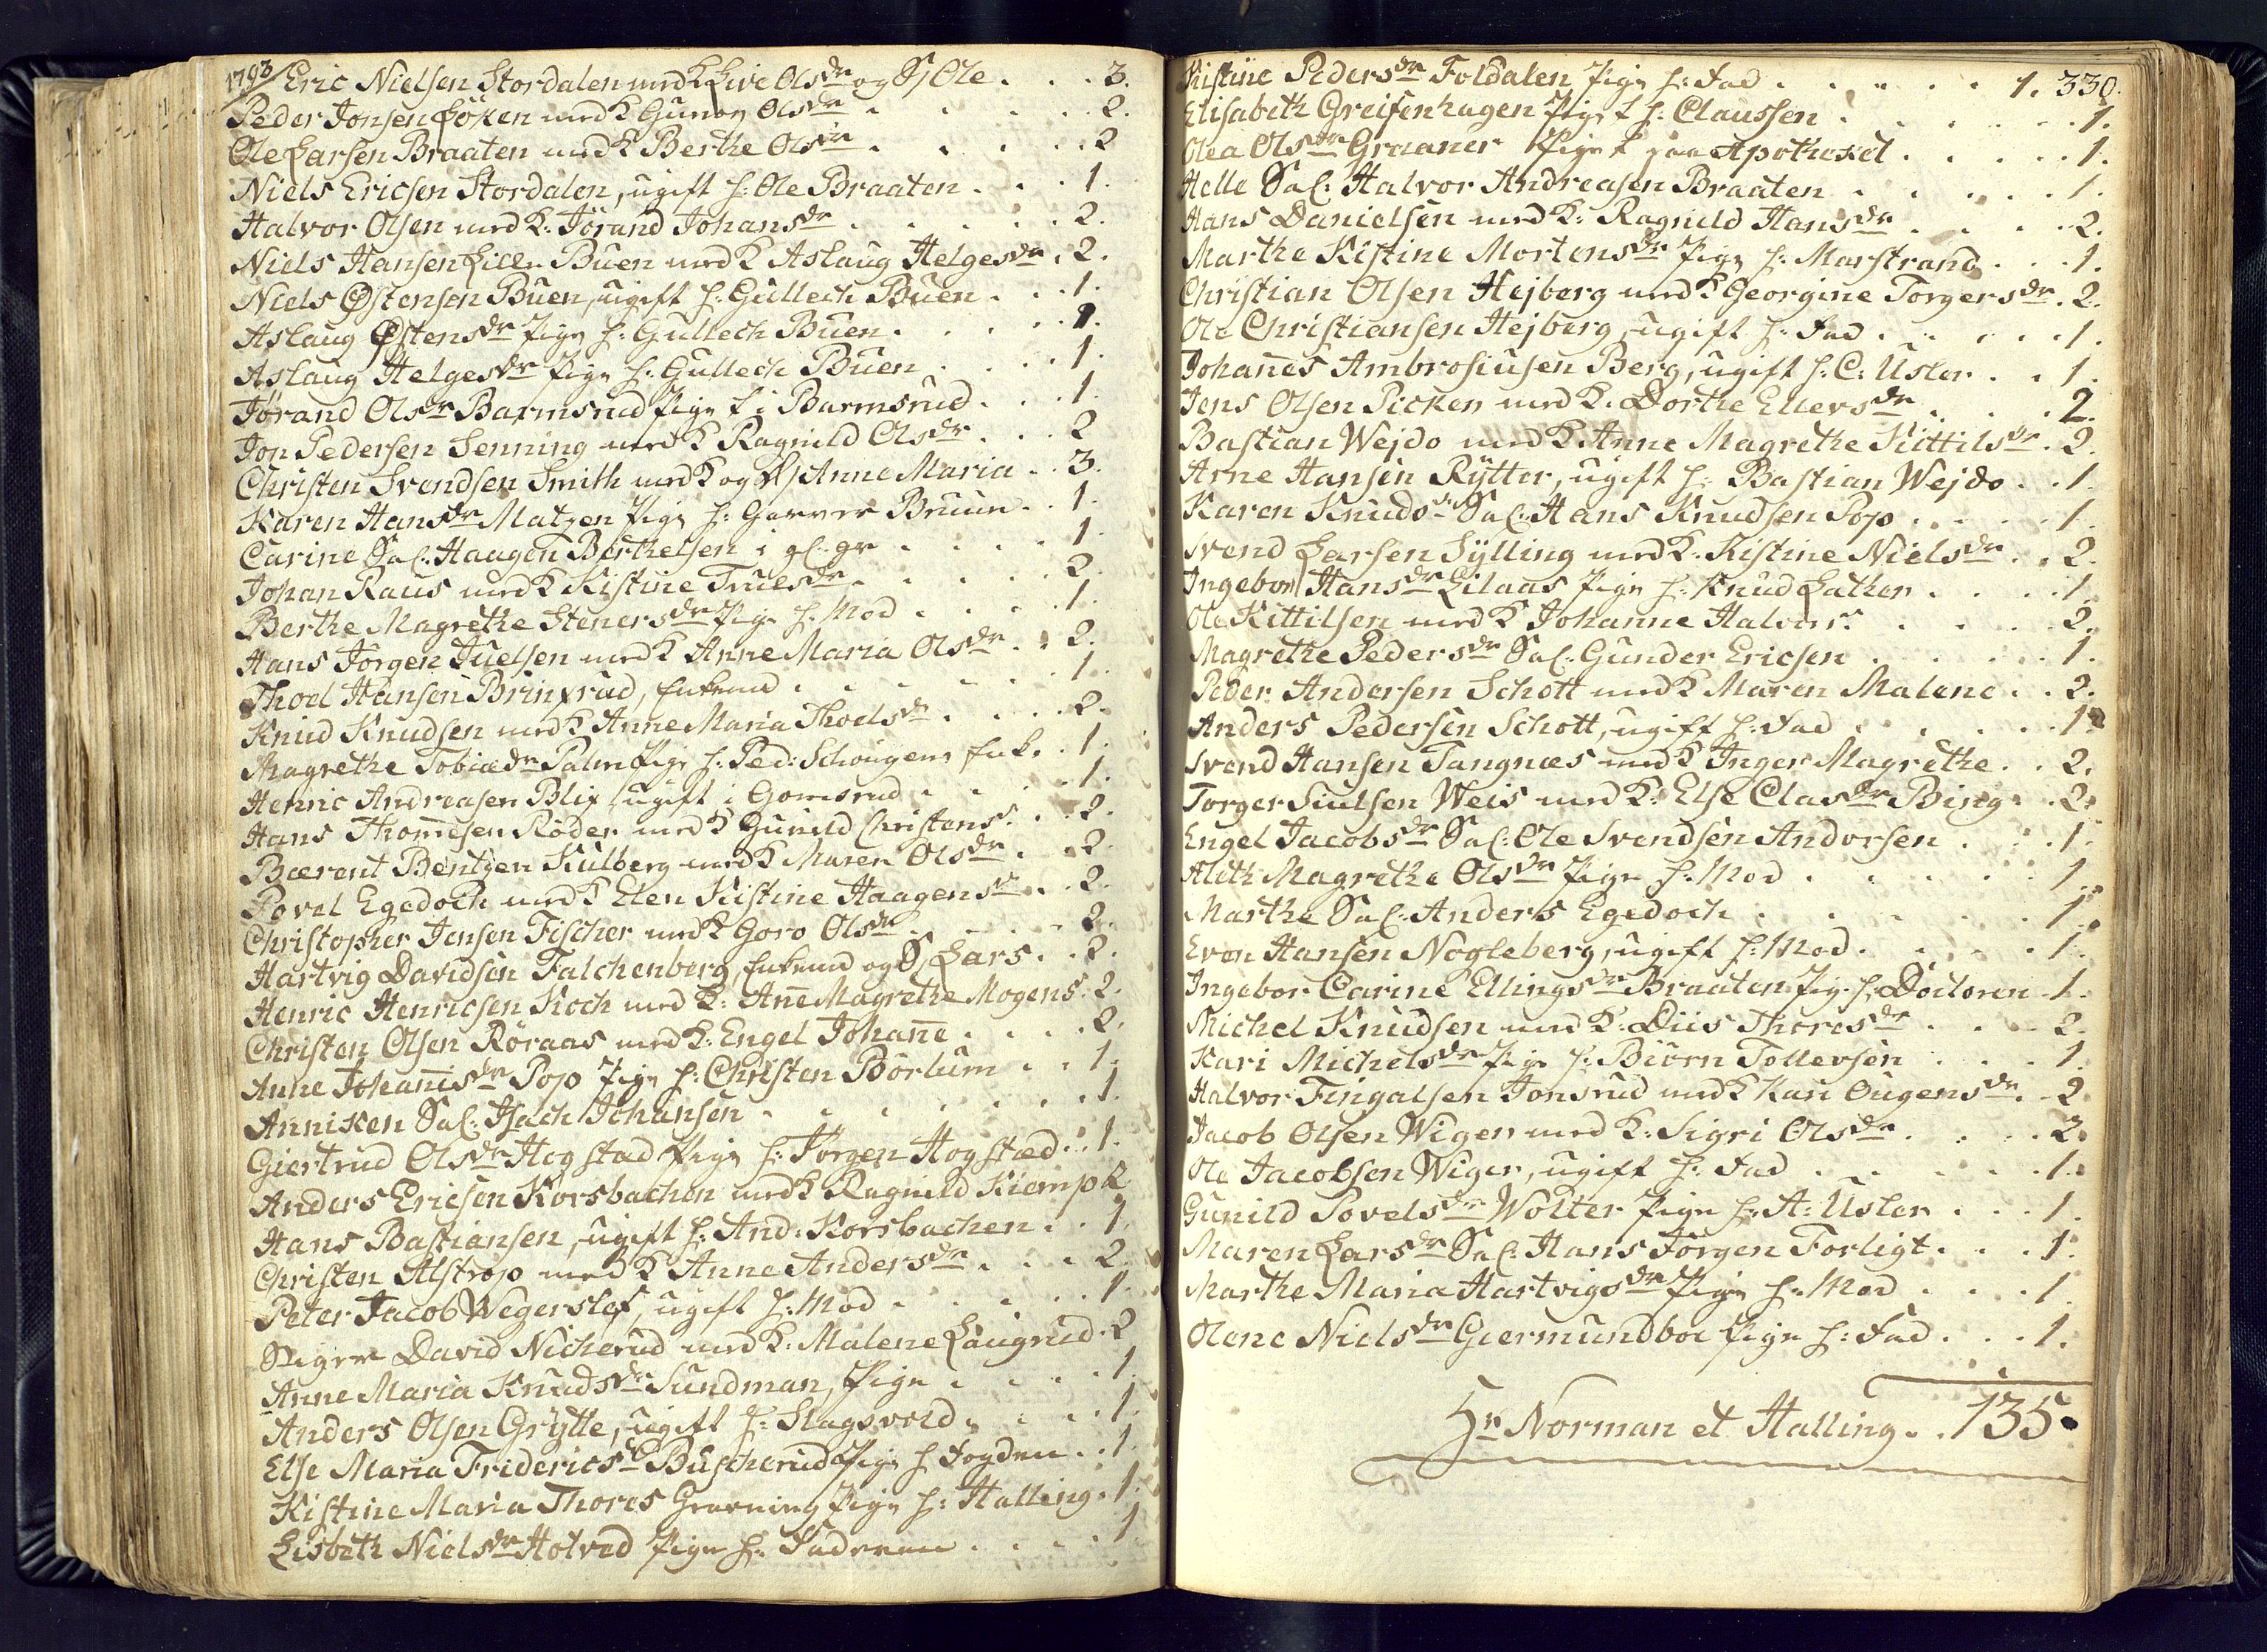 1793/ Eric Nielsen Stordalen med K Live Olsdr og S/ Ole . . . 3.
Peder Jonsen Löken med K Gunor Olsdr . . . . . 2.
Ole Larsen Braaten med K Berthe Olsdr . . . . . 2
Niels Ericsen Stordalen, ugift h: Ole Braaten . . . 1.
Halvor Olsen med K: Jörand Johansdr . . . . . 2.
Niels Hansen Lille Buen med K Aslaug Helgesdr . 2.
Niels Østensen Buen, ugift h: Gullech Buen . . . 1.
Aslaug Østensdr Pige h: Gullech Buen . . . . . 1.
Aslaug Helgesdr Pige h: Gullech Buen . . . . 1.
Jörand Olsdr Barmsrud Pige t i Barmsrud . . . 1.
Jon Pedersen Senning med K Ragnild Olsdr . . . 2
Christen Svendsen Smith med K og D/ Anne Maria . . 3.
Karen Hansdr Matzen Pige h: Garver Bruun . . 1.
Carine Sal: Haagen Berthelsen i gl: gr . . . . 1.
Johan Raus med K Kistine Truesdr . . . . . 2.
Berthe Magrethe Stenersdr Pige h: Mod . . . . 1.
Hans Jörgen Juelsen med K Anne Maria Olsdr . . 2.
Thoel Hansen Brinxrud, Enkemd . . . . . . 1.
Knud Knudsen med K Anne Maria Thoelsdr . . . . 2.
Magrethe Tobiædr Palm Pige h: Ped: Schougens Enk. . 1.
Henric Andreasen Blix ugift i Gomsrud . . . . 1.
Hans Thomesen Röder med K Gunild Christens: . . 2.
Bærent Bentzen Kulberg med K Maren Olsdr . . . 2.
Povel Egedoch med K Elen Kistine Haagensdr . . 2.
Christopher Jensen Fischer med K Goro Olsdr . . . . 2.
Hartvig Davidsen Falchenberg, Enkemd og S/ Lars . . 2.
Henric Henricsen Koch med K: Anne Magrethe Mogens . 2.
Christen Olsen Röraas med K: Engel Johane . . . . 2.
Anne Johannisdr Pop Pige h: Christen Börlum . . 1.
Anniken Sal: Isach Johansen . . . . . . 1.
Giertrud Olsdr Hogstad Pige h: Jörgen Hogstad . . 1.
Anders Ericsen Korsbachen med K Ragnild Kiemp 2
Hans Bastiansen, ugift h: And: Korsbachen . . 1.
Christen Alstrop med K Anne Andersdr . . . 2.
Peter Jacob Wegerslef, ugift h: Mod . . . . . 1.
Stiger David Nicherud med K: Malene Laugrud . 2
Anne Maria Knudsdr Sundman, Pige . . . . 1.
Anders Olsen Grytte, ugift h: Slagsvold . . . 1.
Else Maria Fridericsdr Buscherud Pige h Fogden . . 1.
Kistine Maria Thores Gravning Pige h: Halling . 1.
Lisbeth Nielsdr Hotved Pige h: Faderen . . . . 1
Kistine Pedersdr Foldalen Pige h: Fad . . . . . . 1. 330.
Elisabeth Greifenhagen Pige t h: Claussen . . . . . . 1.
Olea Olsdr Graaner Pige t paa Apotheket . . . . . 1.
Helle Sal: Halvor Andreasen Braaten . . . . . 1.
Hans Danielsen med K: Ragnild Hansdr . . . . 2.
Marthe Kistine Mortensdr Pige h: Marstrand . . . 1.
Christian Olsen Hejberg med K Georgine Torgersdr . 2.
Ole Christiansen Hejberg, ugift h: Fad . . . . . 1.
Johannes Ambrosiusen Berg, ugift h: C: Usler . . 1.
Jens Olsen Picken med K: Dorthe Ellersdr . . . . 2.
Bastian Wejdo med K Anne Magrethe Kittilsdr . 2.
Arne Hansen Rÿtter, ugift h: Bastian Wejdo . . 1.
Karen Knudsdr Sal: Hans Knudsen Pop . . . . . 1.
Svend Larsen Sylling med K: Kistine Nielsdr . . 2.
Ingebor Hansdr Lilaas Pige h: Knud Lather . . . . 1.
Ole Kittilsen med K Johanne Halvors: . . . . 2.
Magrethe Pedersdr Sal: Gunder Ericsen . . . . . 1.
Peder Andersen Schott med K Maren Malene . . 2.
Anders Pedersen Schott, ugift h: Fad . . . . . 1.
Svend Hansen Tangnæs med K Inger Magrethe . . 2.
Torger Siulsen Weis med K: Else Clasdr Bing . . 2.
Engel Jacobsdr Sal: Ole Svendsen Andorsen . . . 1.
Aleth Magrethe Olsdr Pige h: Mod . . . . . . 1.
Marthe Sal: Anders Egedoch . . . . . . . 1.
Even Hansen Nogleberg, ugift h: Mod . . . . . 1.
Ingebor Carine Ellingsdr Braaten Pig. h: Doctoren . 1.
Michel Knudsen med K: Diis Thoresdr . . . 2.
Kari Michelsdr Pige h: Biörn Tollevsen . . . . 1.
Halvor Fingalsen Jonsrud med K Kari Ougensdr . . 2
Jacob Olsen Wiger med K: Sigri Olsdr . . . . 2.
Ole Jacobsen Wiger, ugift h: Fad . . . . . . 1.
Gunild Povelsdr Wolter Pige h: A: Usler . . . 1.
Maren Larsdr Sal: Hans Jörgen Forligt . . . 1.
Marthe Maria Hartvigsdr Pige h: Mod . . . . 1.
Olene Nielsdr Giermundboe Pige h: Fad . . . 1.
Hr Norman et Halling . . 135.